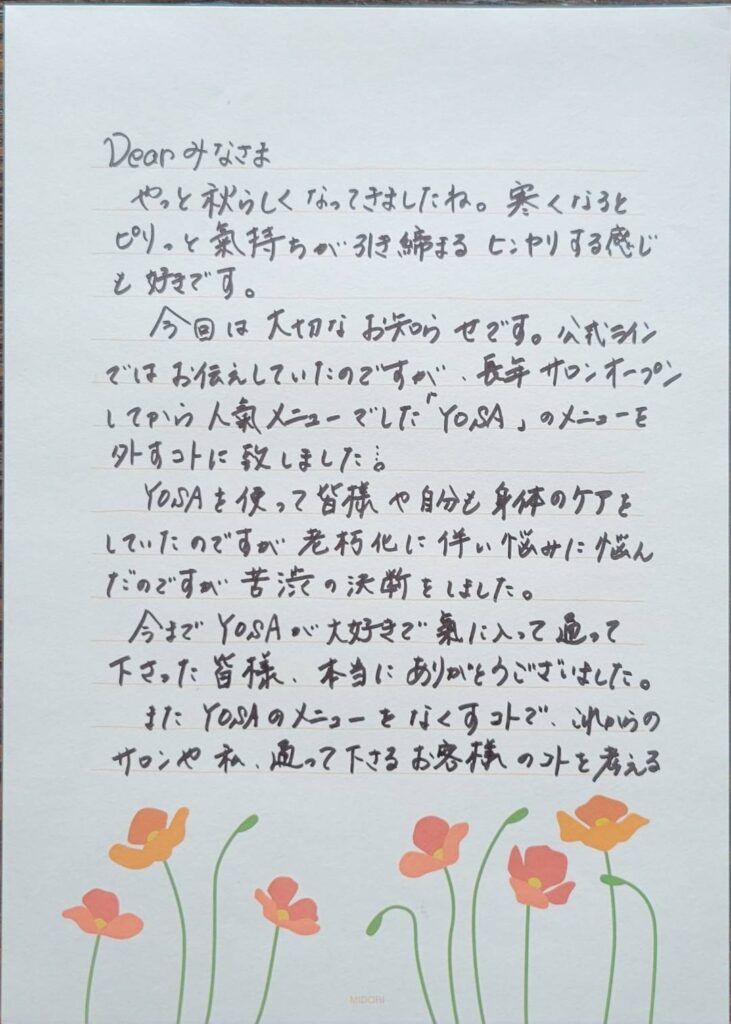 Dear みなさま
やっと秋らしくなってきましたね。寒くなると
ピリっと氣持ちが引き締まるヒンヤリする感じ
も好きです。
今回は大切なお知らせです。公式ライン
ではお伝えしていたのですが、長年サロンオープン
してから人氣メニューでした「YOSA」のメニューを
外すコトに致しました…。
YOSAを使って皆様や自分も身体のケアを
していたのですが老朽化に伴い悩みに悩ん
だのですが苦渋の決断をしました。
今までYOSAが大好きで氣に入って通って
下さった皆様、本当にありがとうございました。
またYOSAのメニューをなくすコトで、これからの
サロンや私、通って下さるお客様のコトを考える
MIDORI